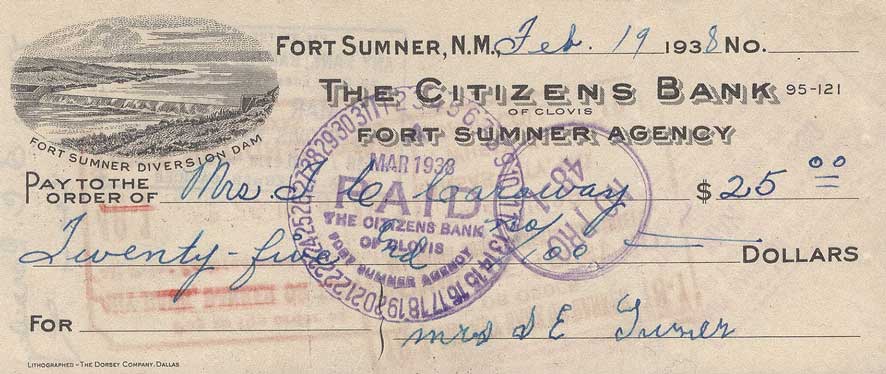 FORT SUMNER, N.M., Feb. 19 1938 No.
THE CITIZENS BANK 95-121
OF CLOVIS
FORT SUMNER AGENCY
FORT SUMNER DIVERSION DAM
PAY TO THE
ORDER OF Mrs $ 25 00
Twenty-five and no/00 DOLLARS
FOR
Mrs S E Turner
LITHOGRAPHED - THE DORSEY COMPANY, DALLAS
MAR 1938
PAID
THE CITIZENS BANK
OF CLOVIS
FORT SUMNER AGENCY